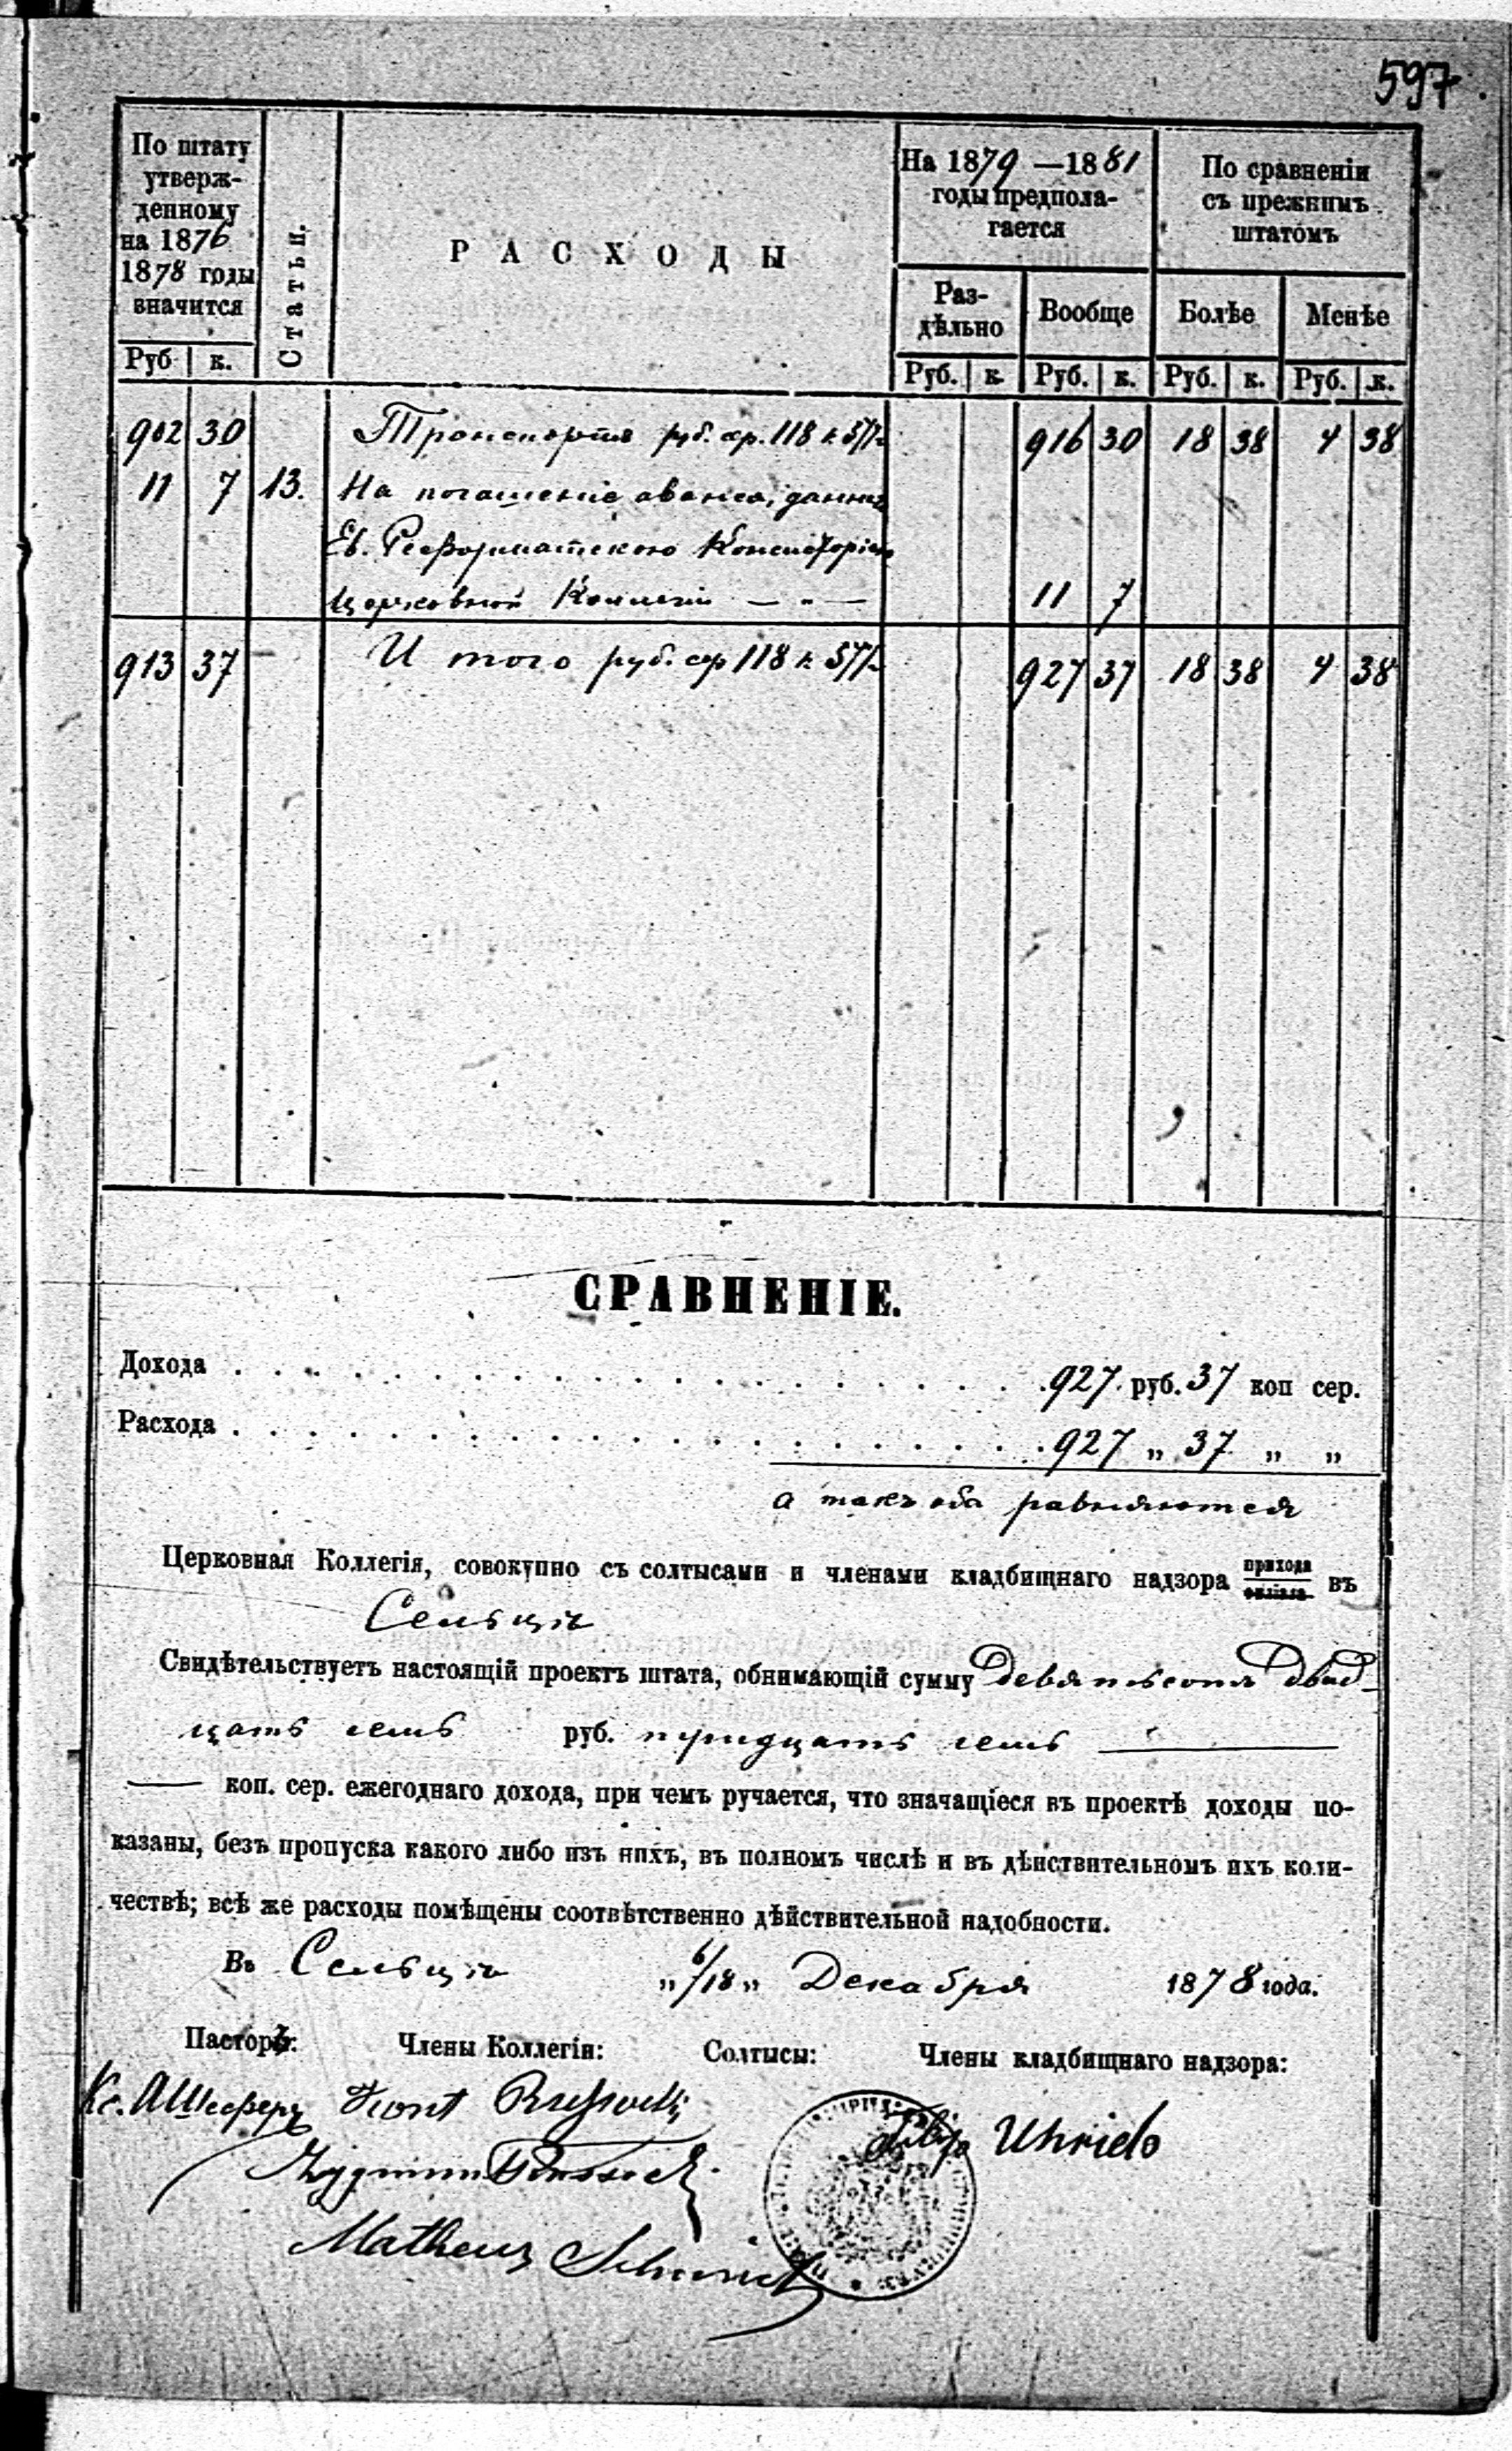 597.
По штату
утверж-
денному
на 1876
1878 годы
значится
Руб
к.
Статьи.
РАСХОДЫ
На 1879 —1881
годы предпола-
гается
Раз-
дѣльно
Вообще
Руб.
к.
Руб.
к.
По сравненіи
съ прежнимъ
штатомъ
Болѣе
Менѣе
Руб.
к.
Руб.
к.
902 30 Транспортъ руб. сер. 118 к 57½ 916 30 18 38 4 38
11 7 13. На погашеніе аванса, данна
Ев. Реформатскою Консисторіею
церковной Коллегіи — „ — 11 7
913 37 — И того руб. сер 118 к 57½ 927 37 18 38 4 38
СРАВНЕНІЕ.
Дохода . . . . . . . . . . . . . . . . . . . . 927 руб. 37 коп сер.
Расхода . . . . . . . . . . . . . . . . . . . . 927 „ 37 „ „
а такъ оба равняются
Церковная Коллегія, совокупно съ солтысами и членами кладбищнаго надзора прихода филіала въ
Сельцѣ
Свидѣтельствуетъ настоящій проектъ штата, обнимающій сумму Девятьсотъ Двад-
цать семь руб. тридцать семь ———
—— коп. сер. ежегоднаго дохода, при чемъ ручается, что значащіеся въ проектѣ доходы по-
казаны, безъ пропуска какого либо изъ нихъ, въ полномъ числѣ и въ дѣйствительномъ ихъ коли-
чествѣ; всѣ же расходы помѣщены соотвѣтственно дѣйствительной надобности.
Въ Сельцѣ „6/18„ Декабря 1878 года.
Пасторъ:
Члены Коллегіи:
Солтысы:
Члены кладбищнаго надзора:
Кс. А Шеферъ
Matheus